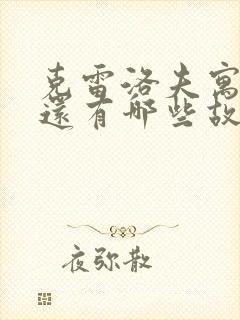 克雷洛夫寓
還有哪些故
夜弥散